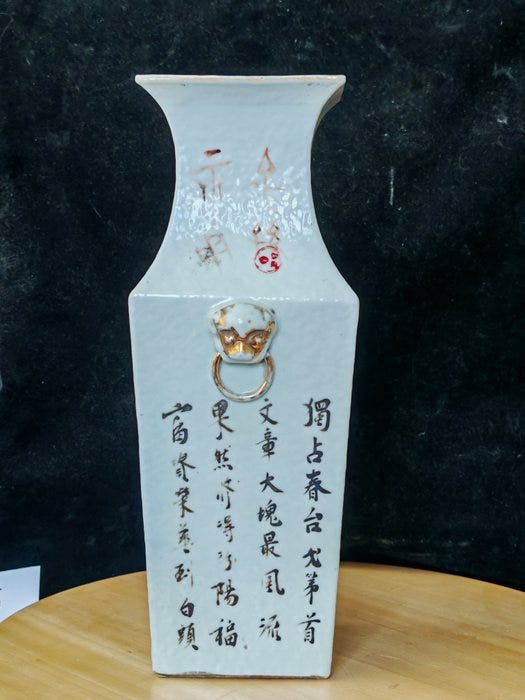 獨占春台第首
文章大塊最風流
果然修得汾陽福
富貴榮華到白頭